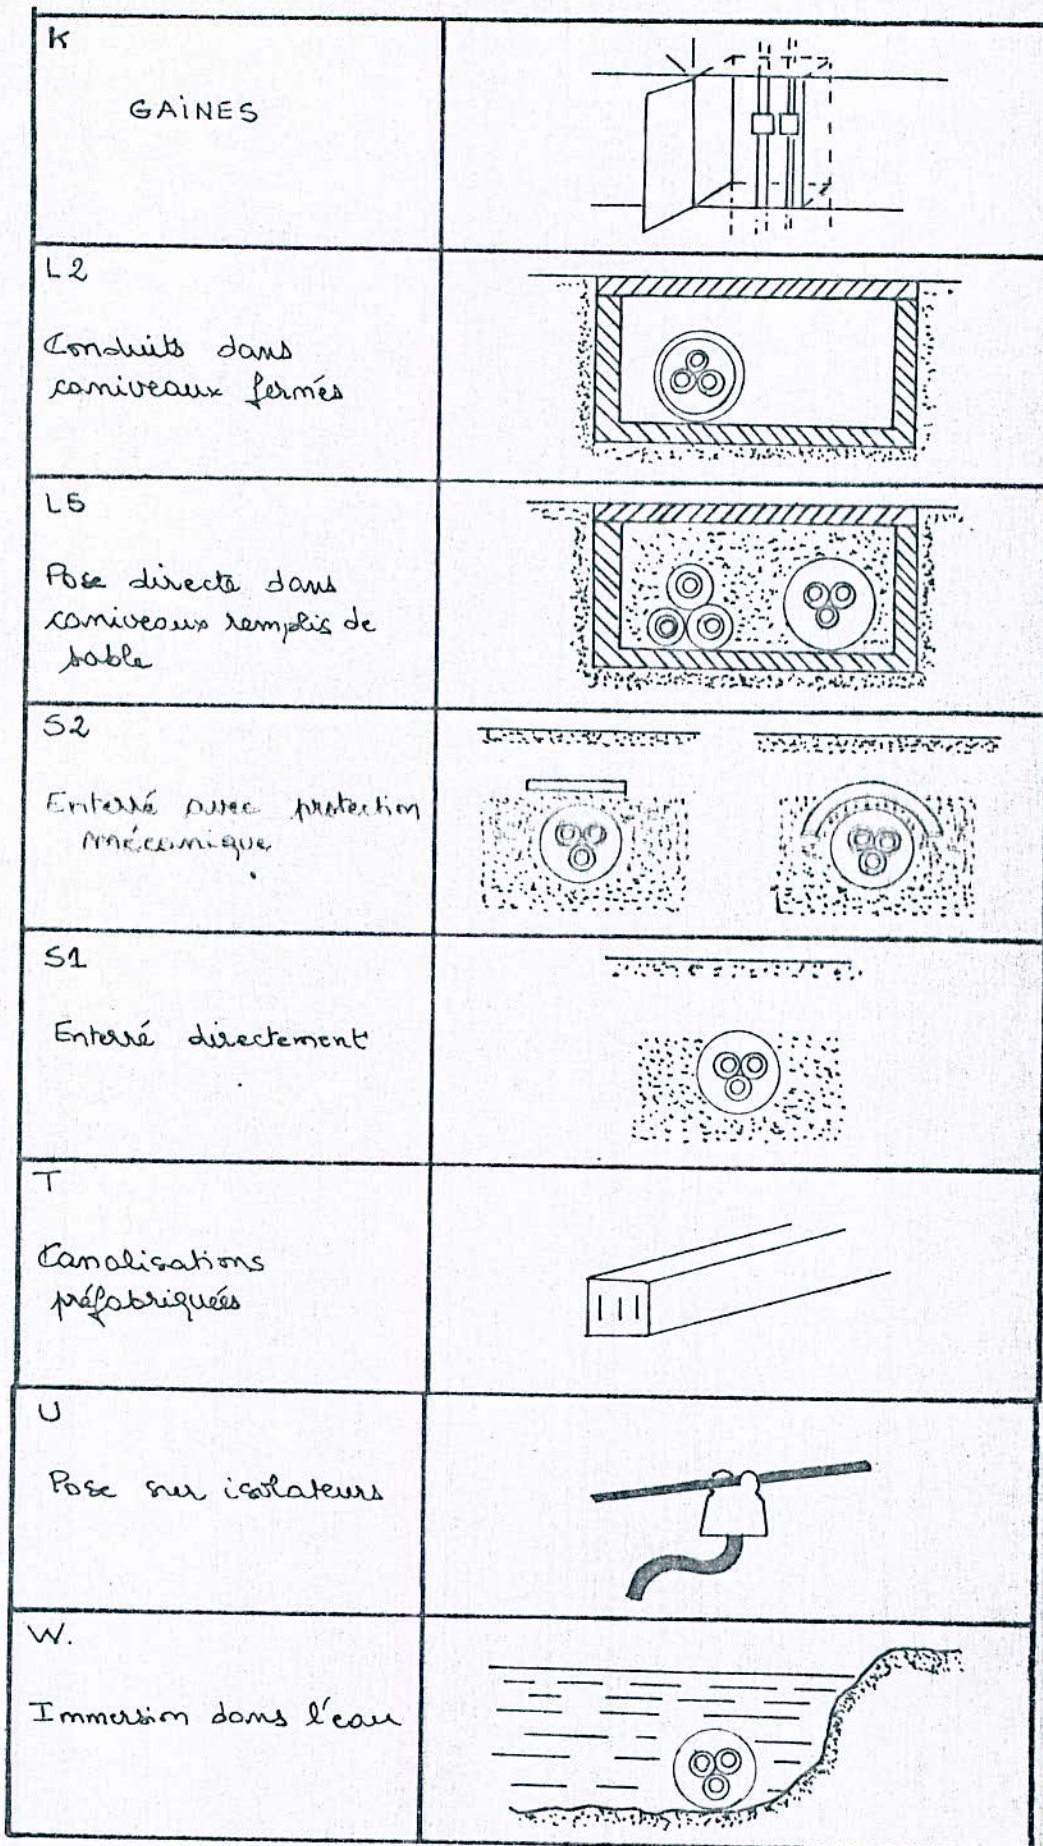 K
GAINES
L2
Conduits dans
caniveaux fermés
L5
Pose directe dans
caniveaux remplis de
sable
S2
Enterré avec protection
mécanique
S1
Enterré directement
T
Canalisations
préfabriquées
U
Pose sur isolateurs
W.
Immersion dans l'eau